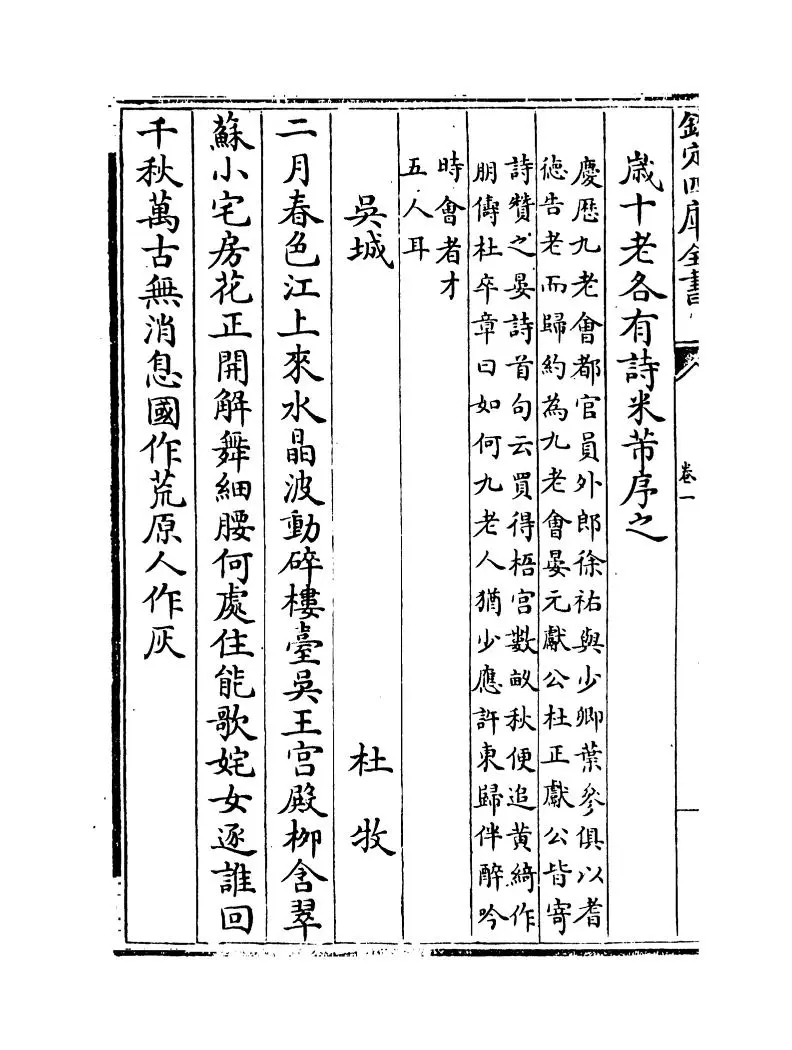 欽定四庫全書
卷一
歲十老各有詩米芾序之
慶歴九老會都官員外郎徐祐與少卿葉參俱以耆
徳告老而歸約為九老會晏元獻公杜正獻公皆寄
詩贊之晏詩首句云買得梧宫數畝秋便追黄綺作
朋儔杜卒章曰如何九老人猶少應許東歸伴醉吟
時會者才
五人耳
吳城
杜牧
二月春色江上來水晶波動碎樓臺吳王宫殿柳含翠
蘇小宅房花正開解舞細腰何處住能歌姹女逐誰回
千秋萬古無消息國作荒原人作灰